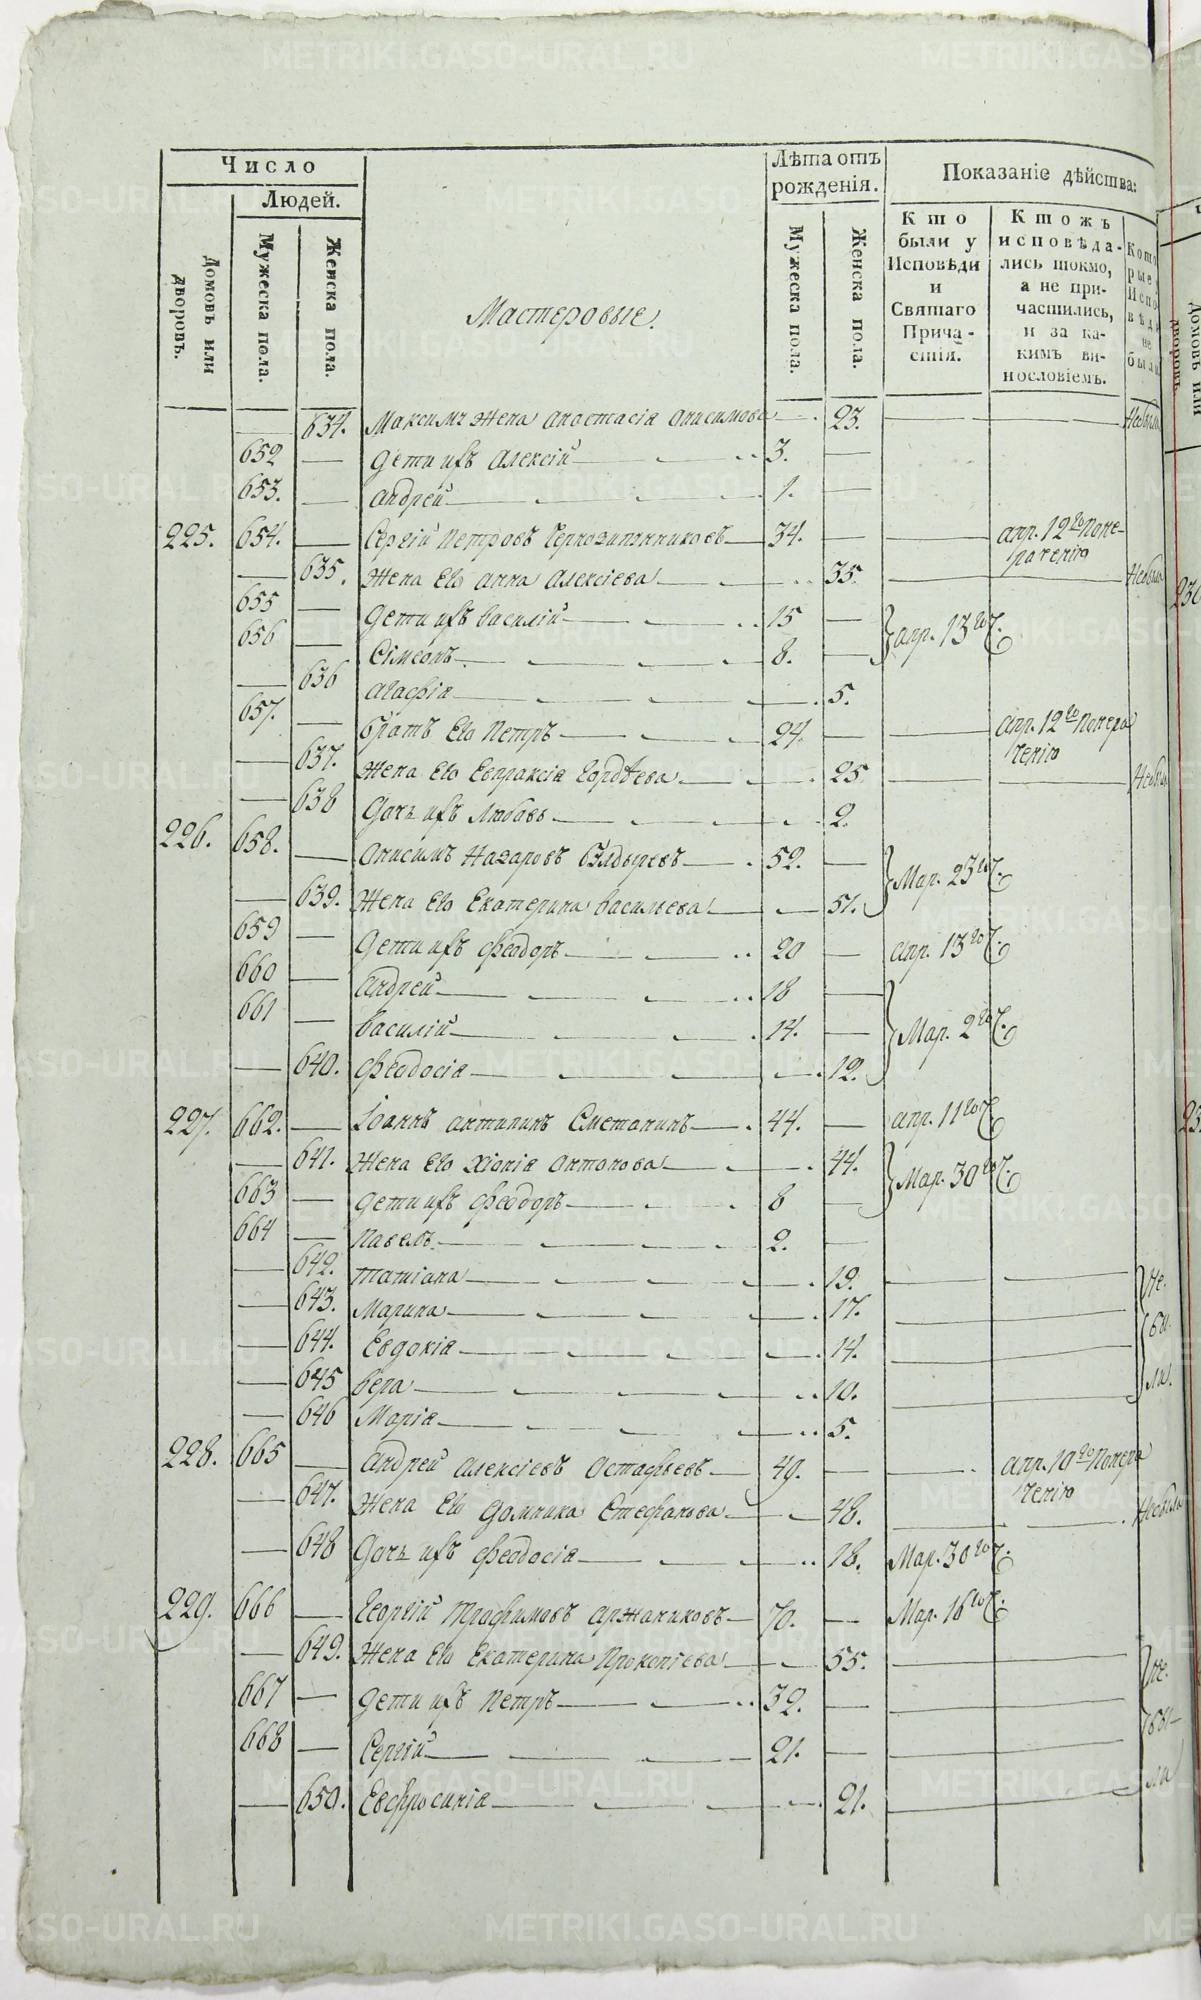 Число
Людей.
Домовъ или дворовъ.
Мужеска пола.
Женска пола.
Мастеровые.
Лѣта отъ рожденія.
Мужеска пола.
Женска пола.
Показаніе дѣйства:
Кто были у Исповѣди и Святаго Причастія.
Ктожъ исповѣдались токмо, а не причастились, и за какимъ винословіемъ.
634. Максимъ жена Анастасія Онисимова 23. Небыла
652 Дети ихъ Алексій 3.
653. Андрей 1.
225. 654. Сергій Петровъ 34. апр. 12го Попе-
рачению
635. Жена Его Анна Алексіева 35. Небыла
655 Дети ихъ Василій 15 апр. 13го Ч.
656 Сімеонъ 8.
636 Агафія 5.
657. Братъ Его Петръ 24. апр. 12го Попера
чению
637. Жена Его Евпраксія Гордѣева 25 Небыла
638 Дочь ихъ Любовь 2.
226. 658. Онисимъ Назаровъ Болдыревъ 52. Мар. 23го Ч.
639. Жена Его Екатерина Васильева 51.
659 Дети ихъ Феодоръ 20 апр. 13го Ч.
660 Андрей 18 Мар. 2го Ч.
661 Василій 14.
640. Феодосія 12.
227. 662. Іоаннъ Антипинъ Сметанинъ 44. апр. 11го Ч.
641. Жена Его Хіонія Антонова 44. Мар. 30го Ч.
663 Дети ихъ Феодоръ 8
664 Павелъ 2.
642. Татіана 19. Не.
643. Марина 17. бы.
644. Евдокія 14.
645 Вера 10. ли.
646 Марія 5.
228. 665 Андрей Алексіевъ Остафьевъ 49. апр. 10го Попера
чению
647. Жена Его Домника Стефанова 48. Небыла
648 Дочь ихъ Феодосія 18. Мар. 30го Ч.
229. 666 Георгій Трофимовъ Аржаниковъ 70. Мар. 16го Ч.
649. Жена Его Екатерина Прокопіева 55. Не.
667 Дети ихъ Петръ 32. бы-
668 Сергій 21. ли
650. Евфросинія 21.
METRIKI.GASO-URAL.RU